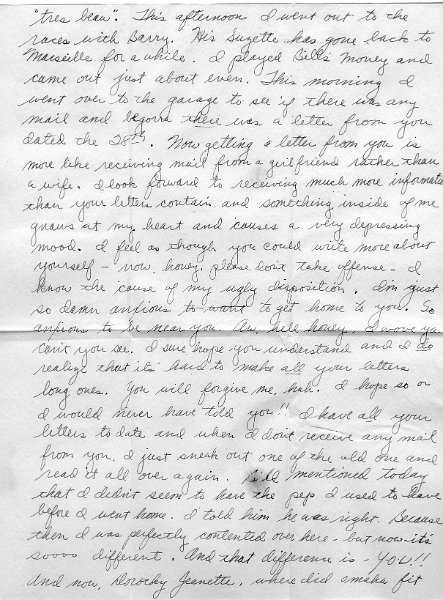 "tres beau". This afternoon I went out to the
races with Barry. His Suzette has gone back to
Marseille for a while. I played Bill's money and
came out just about even. This morning I
went over to the garage to see if there was any
mail and begorra there was a letter from you
dated the 28th. Now getting a letter from you is
more like receiving mail from a girl friend rather than
a wife. I look forward to receiving much more informatio
than your letters contain and something inside of me
gnaws at my heart and causes a very depressing
mood. I feel as though you could write more about
yourself - now, honey, please don't take offense - I
know the cause of my ugly disposition. I'm just
so damn anxious to want to get home to you. So
anxious to be near you. Aw, hell honey, I wove ya
can't you see. I sure hope you understand and I do
realize that it's hard to make all your letters
long ones. You will forgive me, huh. I hope so or
I would never have told you!! I have all your
letters to date and when I don't receive any mail
from you, I just sneak out one of the old one and
read it all over again. mentioned today
that I didn't seem to have the pep I used to have
before I went home. I told him he was right. Because
then I was perfectly contented over here - but now it's
soooo different. And that difference is - YOU!!
And now, Dorothy Jeanette, where did fit